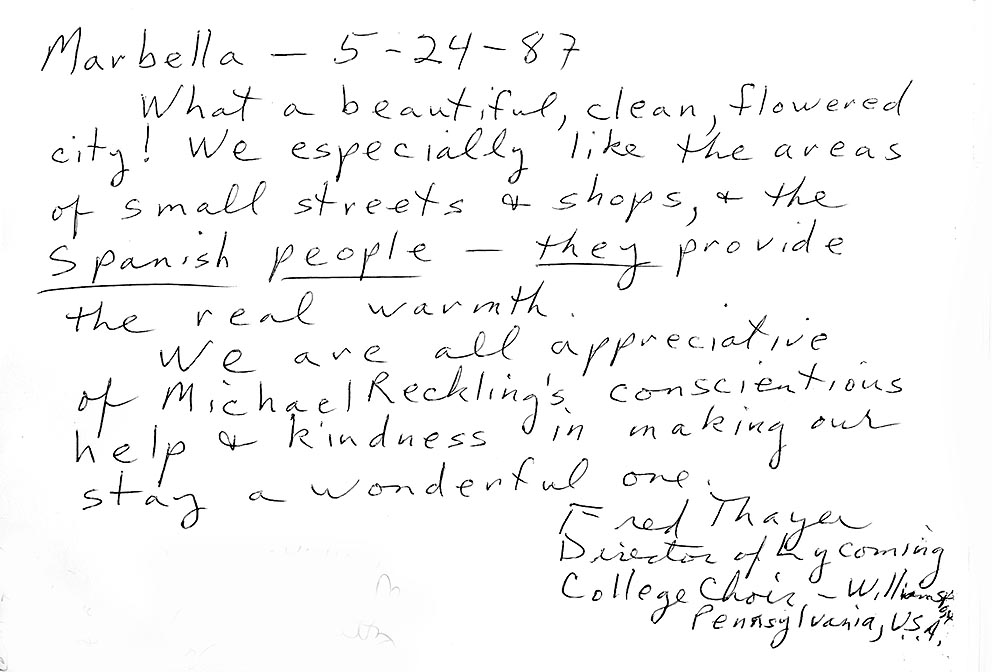 Marbella — 5-24-87
What a beautiful, clean, flowered
city! We especially like the areas
of small streets & shops, & the
Spanish people — they provide
the real warmth.
We are all appreciative
of Michael Reckling's conscientious
help & kindness in making our
stay a wonderful one.
Fred Thayer
Director of Lycoming
College Choir – Williamsport
Pennsylvania, U.S.A.